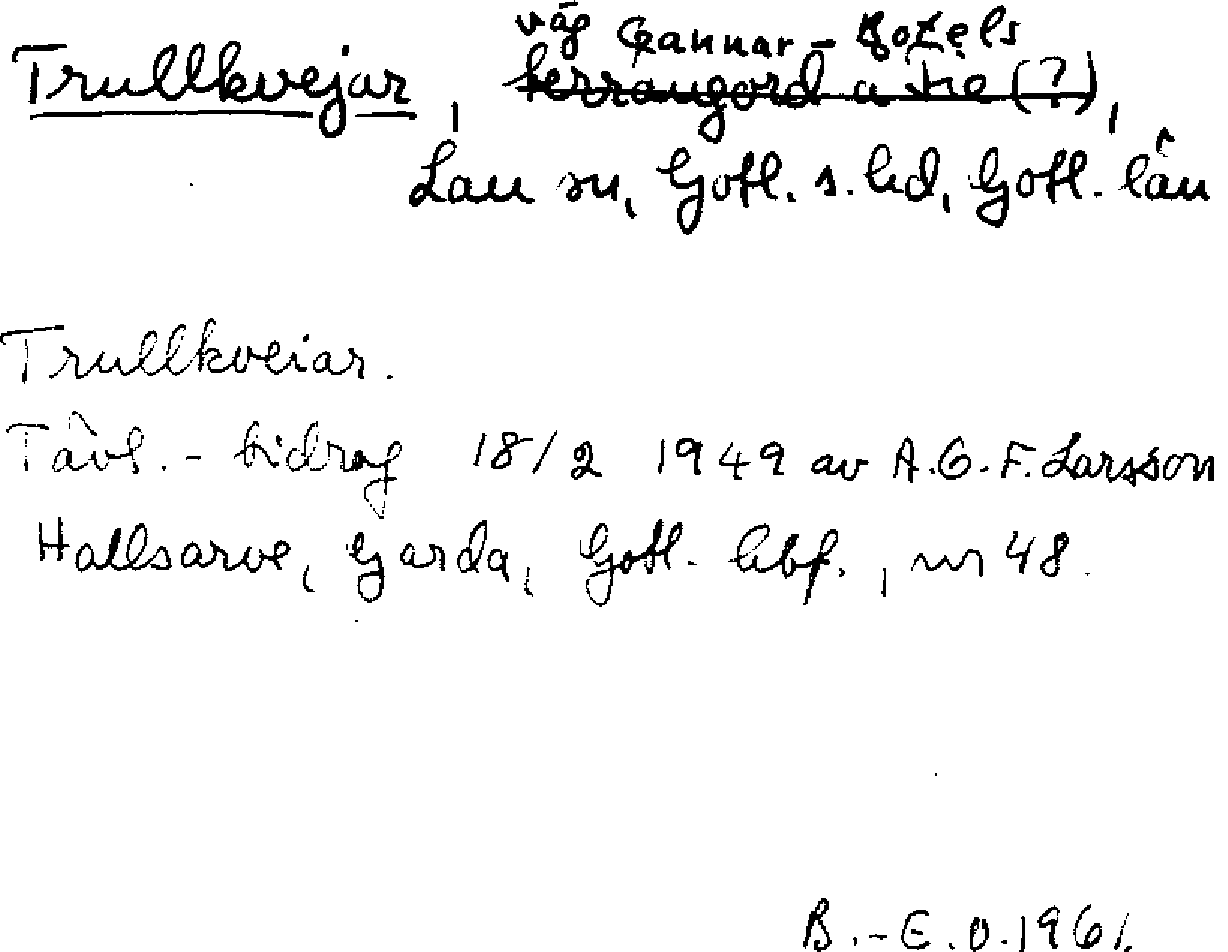 väg Gannar - Botels
Trullkvejar, terrängord a Fie (?),
Lau sn, Gotl. s. hd, Gotl. län
Trullkveiar.
Tävl.-bidrag 18/2 1949 av A.G.F. Larsson
Hallsarve, Garda, Gotl. hbf., nr 48.
B.-E. O. 1961.